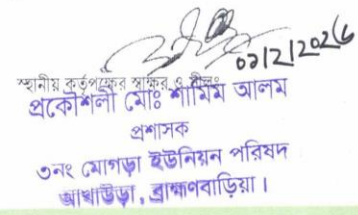 ০১/২/২০২৬
স্থানীয় কর্তৃপক্ষের স্বাক্ষর ও সীলঃ
প্রকৌশলী মোঃ শামিম আলম
প্রশাসক
৩নং মোগড়া ইউনিয়ন পরিষদ
আখাউড়া, ব্রাহ্মণবাড়িয়া।